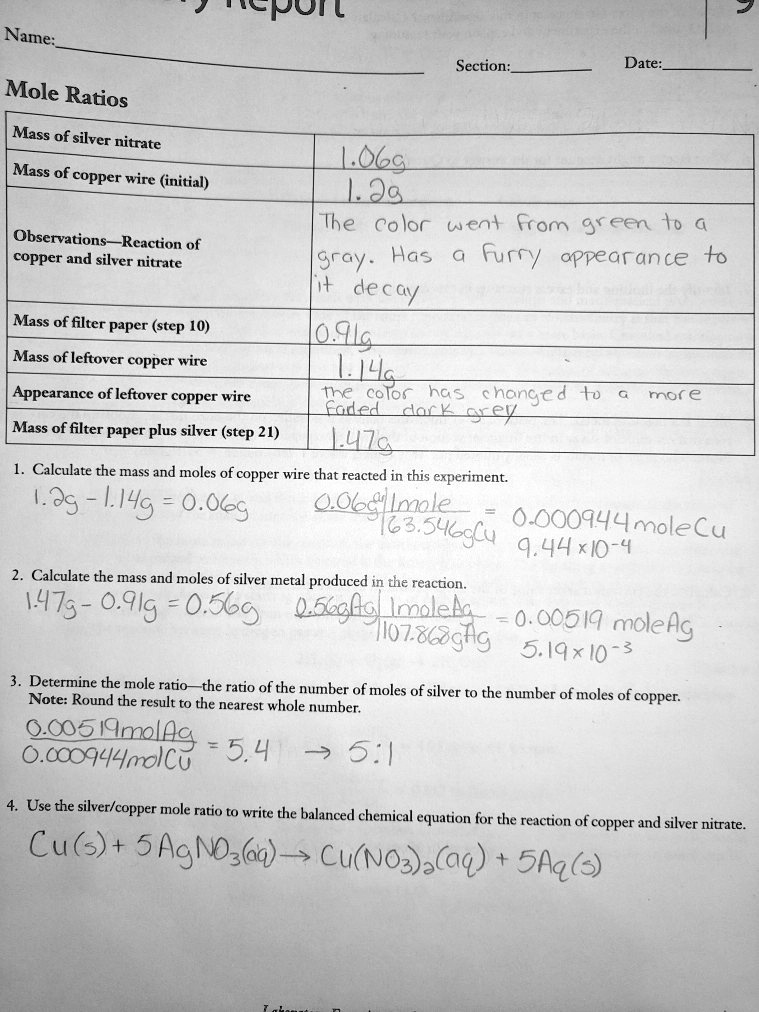 Report
Name:
Section: Date:
Mole Ratios
Mass of silver nitrate 1.06g
Mass of copper wire (initial) 1.2g
Observations—Reaction of
copper and silver nitrate
The color went from green to a
gray. Has a furry appearance to
it decay
Mass of filter paper (step 10) 0.91g
Mass of leftover copper wire 1.14g
Appearance of leftover copper wire
The color has changed to a more
faded dark grey
Mass of filter paper plus silver (step 21) 1.47g
1. Calculate the mass and moles of copper wire that reacted in this experiment.
1.2g - 1.14g = 0.06g 0.06g Cu | 1mole
| 63.546gCu = 0.000944moleCu
9.44 x 10-4
2. Calculate the mass and moles of silver metal produced in the reaction.
1.47g - 0.91g = 0.56g 0.56gAg | 1moleAg
| 107.868gAg = 0.00519 moleAg
5.19 x 10-3
3. Determine the mole ratio—the ratio of the number of moles of silver to the number of moles of copper.
Note: Round the result to the nearest whole number.
0.00519molAg
0.000944molCu = 5.4 → 5:1
4. Use the silver/copper mole ratio to write the balanced chemical equation for the reaction of copper and silver nitrate.
Cu(s) + 5AgNO3(aq) → Cu(NO3)2(aq) + 5Ag(s)